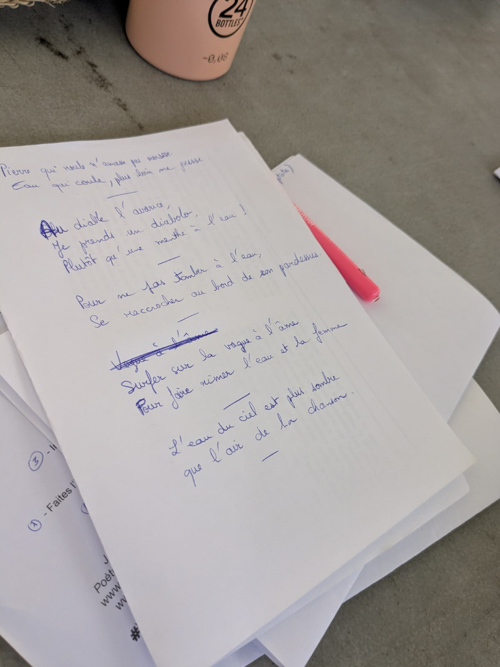 24
BOTTLES®
Pierre qui roule n'amasse pas mousse
Eau qui coule, plus loin me pousse
Au diable l'avarice,
Je prends un diabolo
Plutôt qu'une menthe à l'eau !
Pour ne pas tomber à l'eau,
Se raccrocher au bord de son pardessus
Vague à l'âme
Surfer sur la vague à l'âme
Pour faire rimer l'eau et la femme
L'eau du ciel est plus sombre
que l'air de la chanson.
③ - I
② - Faites l'
J
Poèt
www
ww
#